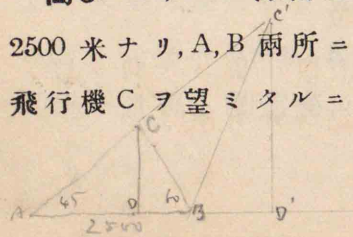 2500 米ナリ,A,B 兩所ニ
飛行機 C ヲ望ミタルニ
C'
C
A 45 D 60 B D'
2500